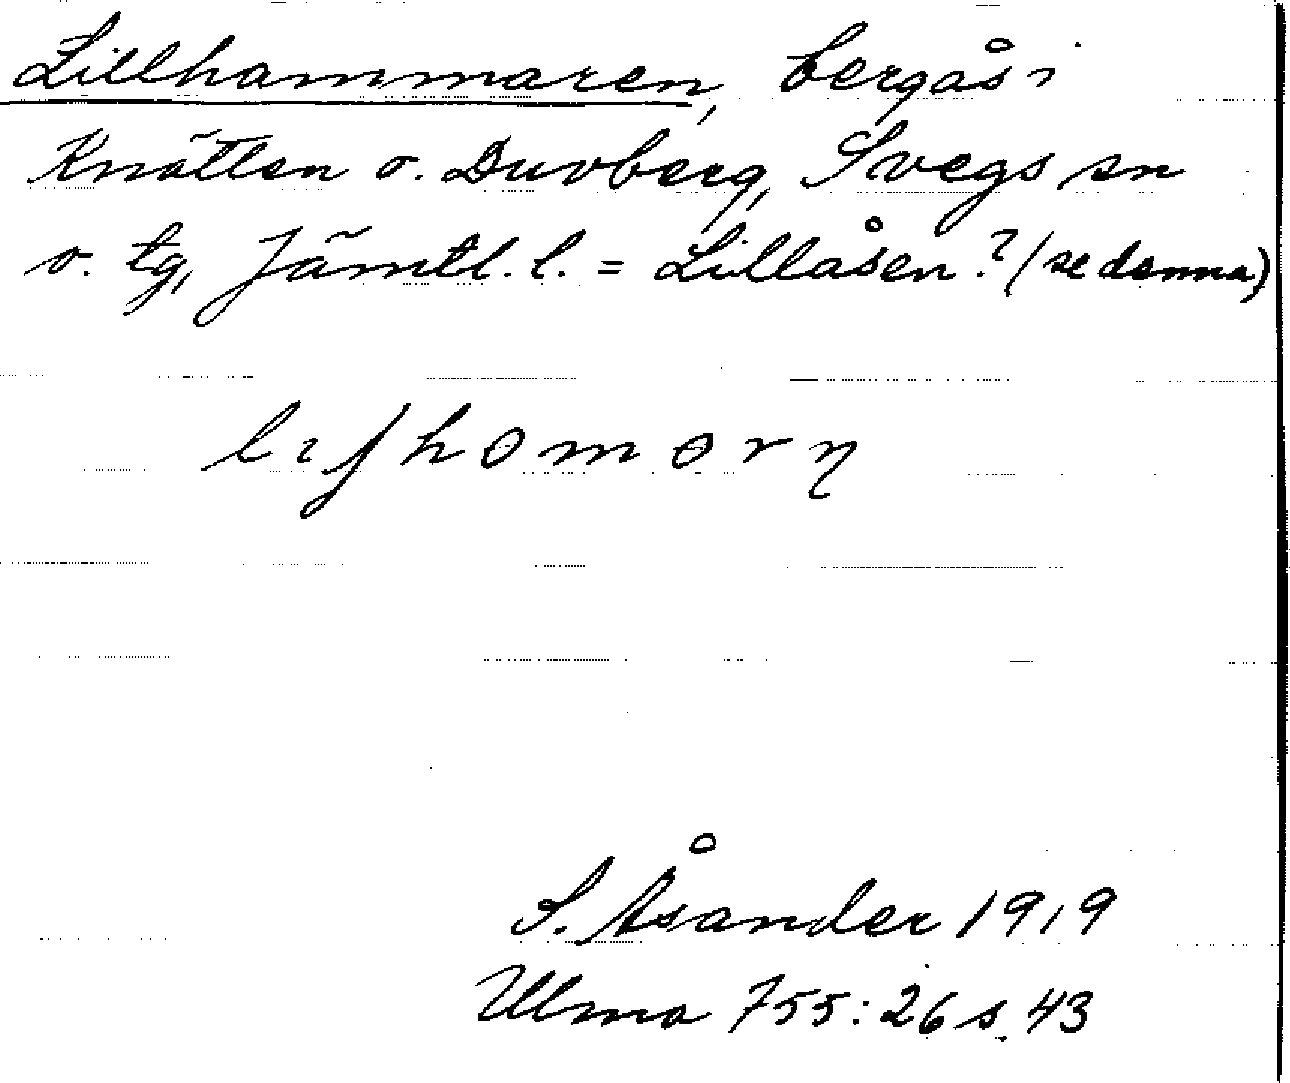 Lillhammaren, bergås i
Knätten o. Duvberg, Svegs sn
o. tg, Jämtl. l. = Lillåsen? (se denna)
S. Åsander 1919
Ulma 755:26 s. 43